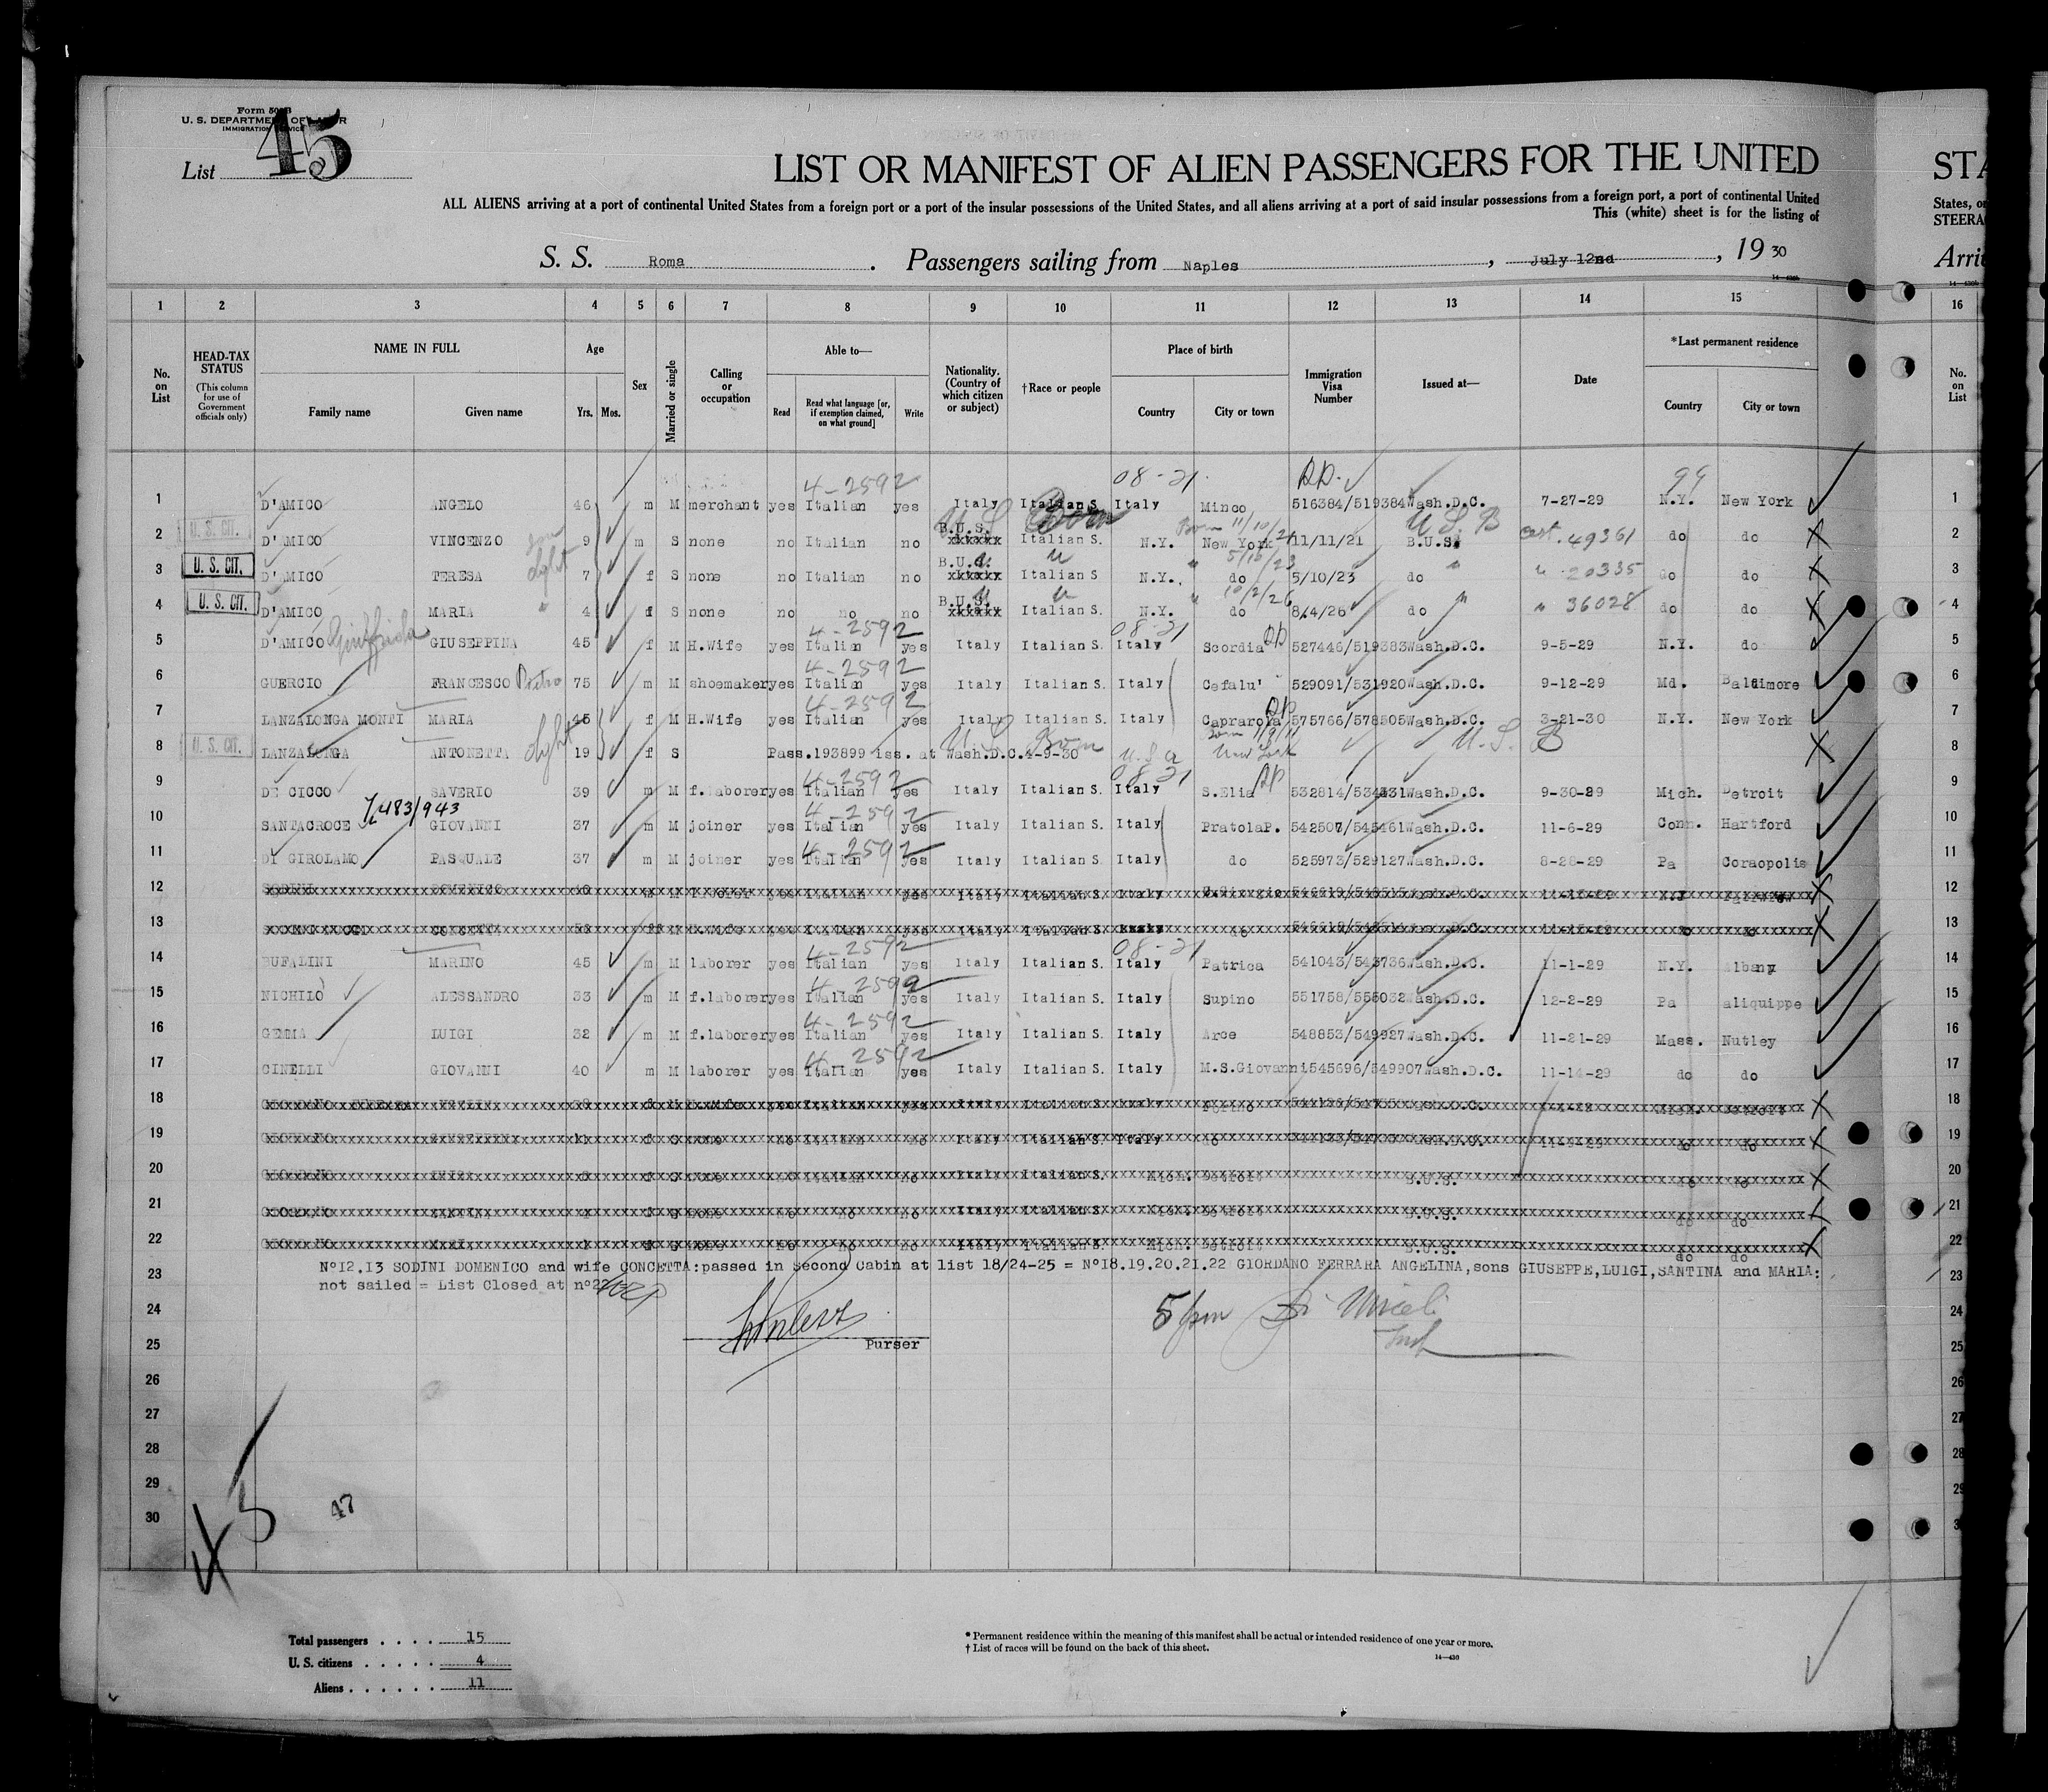 Form 500 B
U. S. DEPARTMENT OF LABOR
IMMIGRATION SERVICE
List 45
LIST OR MANIFEST OF ALIEN PASSENGERS FOR THE UNITED
STA
ALL ALIENS arriving at a port of continental United States from a foreign port or a port of the insular possessions of the United States, and all aliens arriving at a port of said insular possessions from a foreign port, a port of continental United
States, or
This (white) sheet is for the listing of
STEERA
S. S. Roma. Passengers sailing from Naples, July 12nd, 19 30
Arri
1 2 3 4 5 6 7 8 9 10 11 12 13 14 15 16
No. on List
HEAD-TAX STATUS (This column for use of Government officials only)
NAME IN FULL Family name Given name
Age Yrs. Mos.
Sex
Married or single
Calling or occupation
Able to— Read Read what language [or, if exemption claimed, on what ground] Write
Nationality. (Country of which citizen or subject)
†Race or people
Place of birth Country City or town
Immigration Visa Number
Issued at—
Date
*Last permanent residence Country City or town
No. on List
4-2592 08-21. 99
1 D'AMICO ANGELO 46 m M merchant yes Italian yes Italy Italian S. Italy Minco 516384/519384 Wash.D.C. 7-27-29 N.Y. New York 1
U. S. CIT. U S Born Born 11/10/21 U. S. B
2 D'AMICO VINCENZO son 9 m S none no Italian no B.U.S. xxxxxx Italian S. N.Y. New York 11/11/21 B.U.S. Cert. 49361 do do 2
U. S. CIT. 5/10/23
3 D'AMICO TERESA dght 7 f S none no Italian no B.U.S. xxxxxx Italian S N.Y. do 5/10/23 do " 20335 do do 3
U. S. CIT. 10/2/26
4 D'AMICO MARIA " 4 f S none no no no B.U.S. xxxxxx Italian S. N.Y. do 8/4/26 do " 36028 do do 4
4-2592 08-21
5 D'AMICO Giuffrida GIUSEPPINA 45 f M H.Wife yes Italian yes Italy Italian S. Italy Scordia 527446/519383 Wash.D.C. 9-5-29 N.Y. do 5
4-2592
6 GUERCIO FRANCESCO Pietro 75 m M shoemaker yes Italian yes Italy Italian S. Italy Cefalu' 529091/531920 Wash.D.C. 9-12-29 Md. Baldimore 6
4-2592
7 LANZALONGA MONTI MARIA 45 f M H.Wife yes Italian yes Italy Italian S. Italy Caprarola 575766/578505 Wash.D.C. 3-21-30 N.Y. New York 7
U. S. CIT. Born 11/9/11
8 LANZALONGA ANTONETTA dght 19 f S Pass.193899 iss. at Wash.D.C.4-9-30 U S Born U.S.A New York U. S. B 8
4-2592 08-21
9 DE CICCO SAVERIO 39 m M f.laborer yes Italian yes Italy Italian S. Italy S.Elia 532814/534831 Wash.D.C. 9-30-29 Mich. Detroit 9
483/943 4-2592
10 SANTACROCE GIOVANNI 37 m M joiner yes Italian yes Italy Italian S. Italy PratolaP. 542507/545461 Wash.D.C. 11-6-29 Conn. Hartford 10
4-2592
11 DI GIROLAMO PASQUALE 37 m M joiner yes Italian yes Italy Italian S. Italy do 525973/529127 Wash.D.C. 8-28-29 Pa Coraopolis 11
12 SODINI DOMENICO Italy Italian S. Italy 12
13 Italy Italian S. do 13
4-2592 08-21
14 BUFALINI MARINO 45 m M laborer yes Italian yes Italy Italian S. Italy Patrica 541043/543736 Wash.D.C. 11-1-29 N.Y. Albany 14
4-2592
15 NICHILO ALESSANDRO 33 m M f.laborer yes Italian yes Italy Italian S. Italy Supino 551758/555032 Wash.D.C. 12-2-29 Pa aliquippe 15
4-2592
16 GEMMA LUIGI 32 m M f.laborer yes Italian yes Italy Italian S. Italy Arce 548853/549927 Wash.D.C. 11-21-29 Mass. Nutley 16
4-2592
17 CINELLI GIOVANNI 40 m M laborer yes Italian yes Italy Italian S. Italy M.S.Giovanni 545696/549907 Wash.D.C. 11-14-29 do do 17
18 Italy Italian S. Italy 18
19 Italy Italian S. Italy 19
20 Italy Italian S. Mich. Detroit B.U.S. do do 20
21 Italy Italian S. Detroit B.U.S. do do 21
22 Italy Italian S. Mich. Detroit B.U.S. do do 22
23 N°12.13 SODINI DOMENICO and wife CONCETTA:passed in second Cabin at list 18/24-25 = N°18.19.20.21.22 GIORDANO FERRARA ANGELINA,sons GIUSEPPE,LUIGI,SANTINA and MARIA: 23
not sailed = List Closed at n°22=
24 5 pm 24
25 Purser Insp 25
26 26
27 27
28 28
29 29
30 3
45
47
Total passengers . . . . 15
U. S. citizens . . . . . 4
Aliens . . . . . . 11
* Permanent residence within the meaning of this manifest shall be actual or intended residence of one year or more.
† List of races will be found on the back of this sheet.
14—430